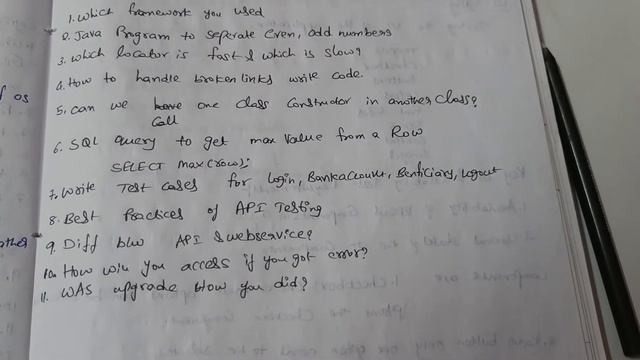 1. Which framework you used
2. Java Program to separate Even, odd numbers
3. which locator is fast & which is slow?
4. How to handle broken links write code.
5. can we have one class constructor in another class?
call
6. SQL query to get max value from a Row
SELECT max(row);
7. Write Test cases for Login, Bankaccount, Benficiary, Logout
8. Best Practices of API Testing
9. Diff b/w API & webservice?
10. How will you access if you got error?
11. WAS upgrade How you did?
of os
other